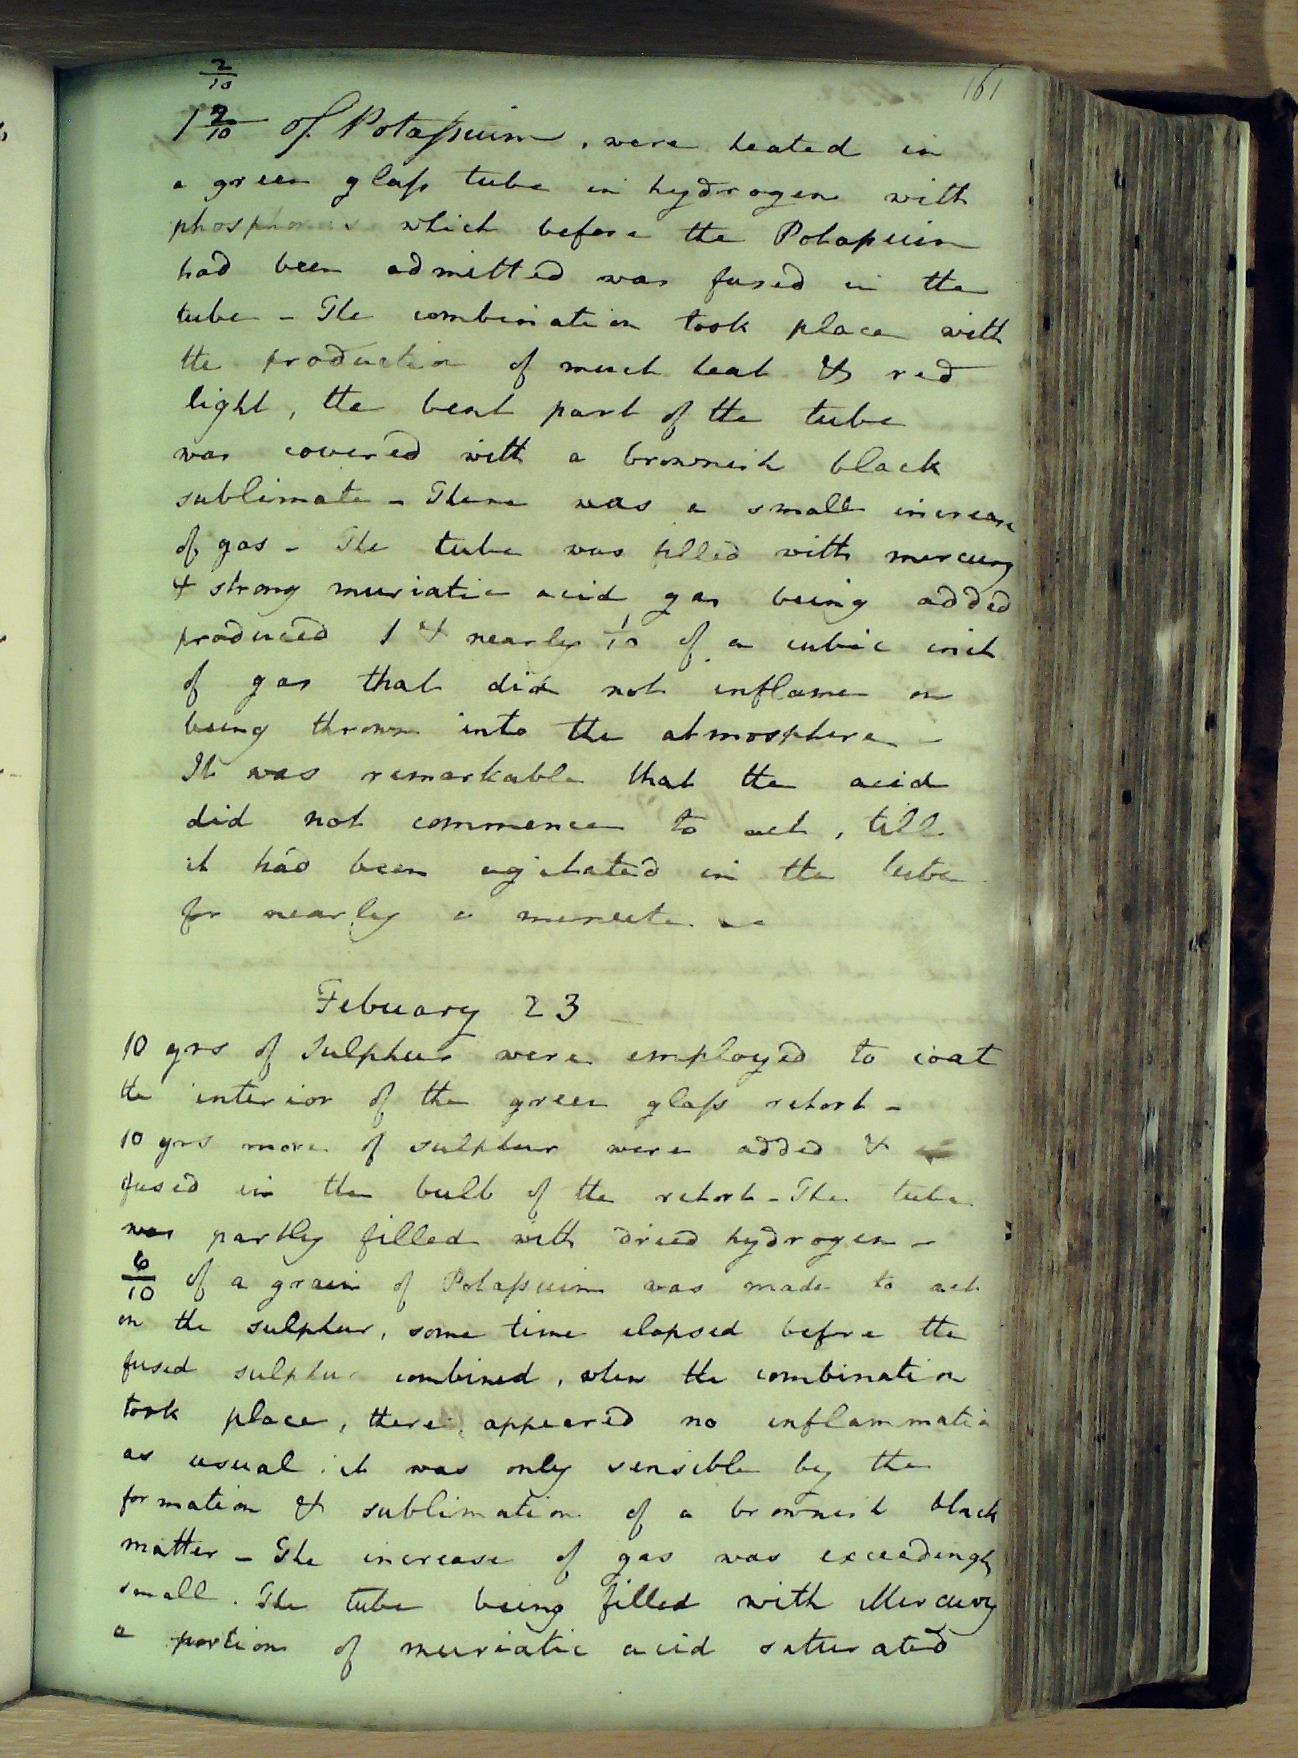 161
2/10
1 2/10 of Potassium, were heated in
a green glass tube in hydrogene with
phosphorus which before the Potassium
had been admitted was fused in the
tube - The combination took place with
the production of much heat & red
light, the bent part of the tube
was covered with a brownish black
sublimate - There was a small increase
of gas - The tube was filled with mercury
& strong muriatic acid gas being added
produced 1 & nearly 1/10 of a cubic inch
of gas that did not inflame on
being thrown into the atmosphere -
It was remarkable that the acid
did not commence to act, till
it had been agitated in the tube
for nearly a minute. -
Febuary 23
10 grs of Sulphur were employed to coat
the interior of the green glass retort -
10 grs more of sulphur were added &
fused in the bulb of the retort - The tube
was partly filled with dried hydrogen -
6/10 of a grain of Potassium was made to act
on the sulphur, some time elapsed before the
fused sulphur combined, when the combination
took place, there appeared no inflammation
as usual: it was only sensible by the
formation & sublimation of a brownish black
matter - The increase of gas was exceedingly
small. The tube being filled with Mercury
a portion of muriatic acid saturated